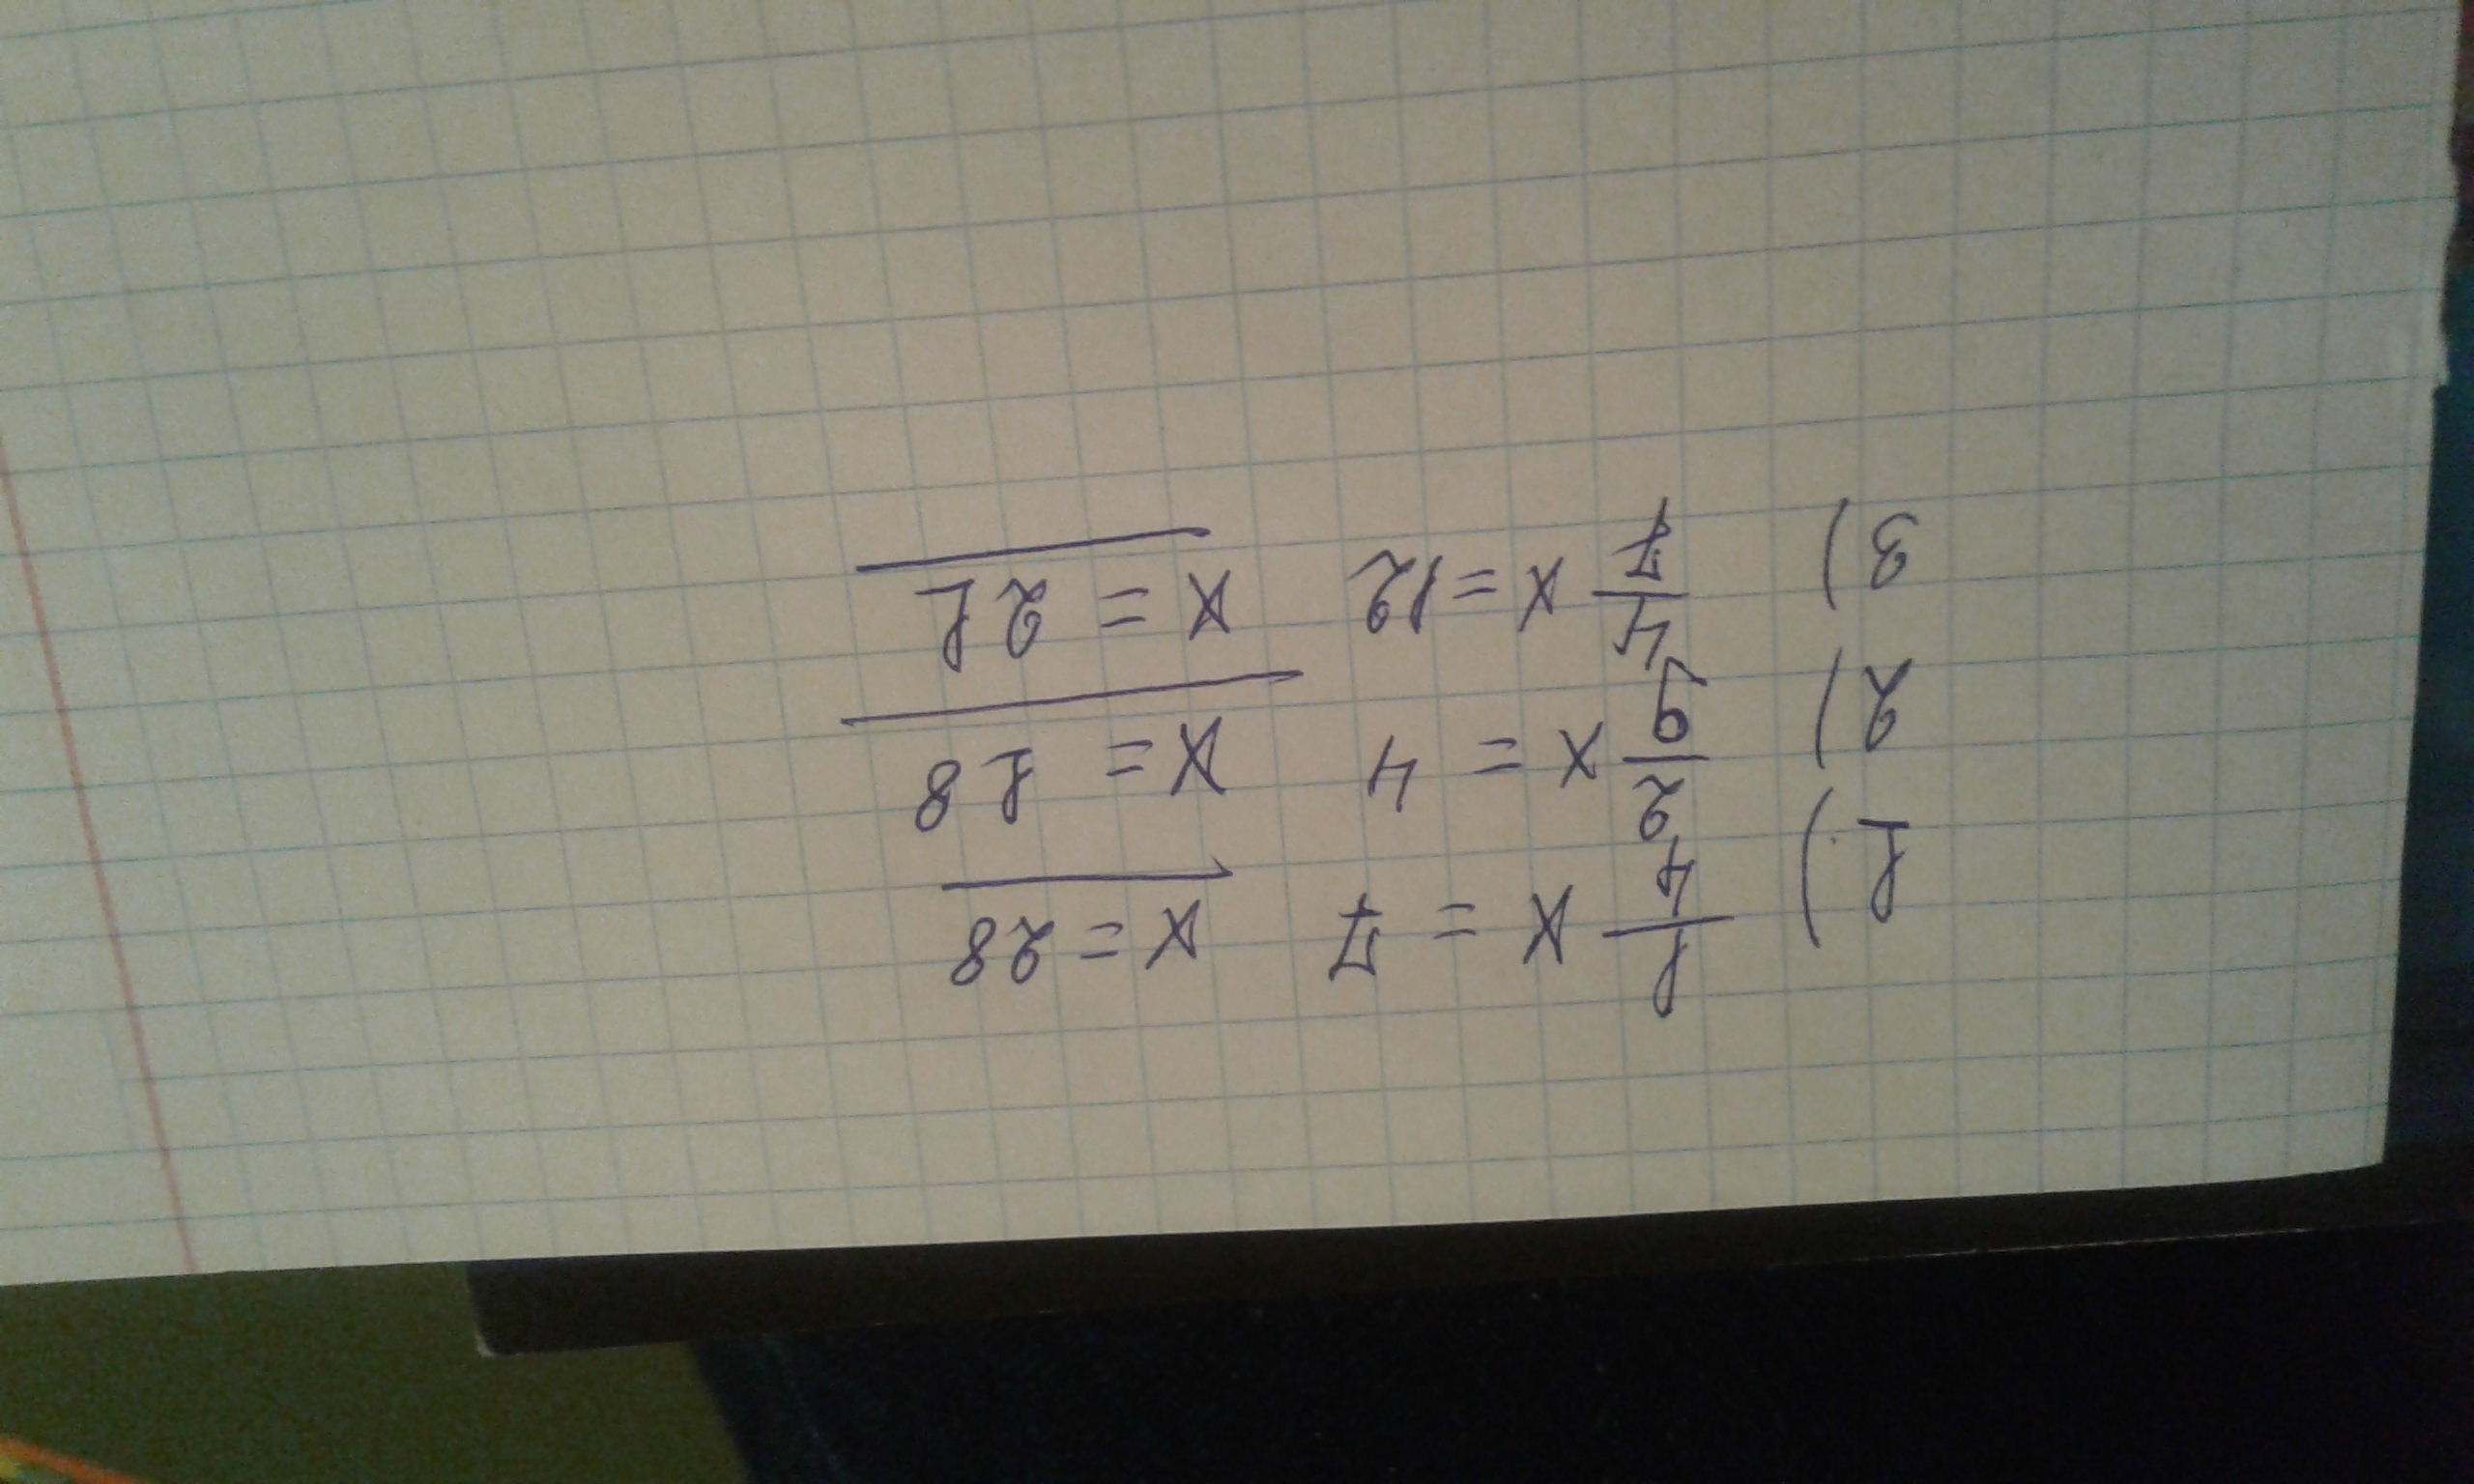 1) 1/4 x = 7 x = 28
2) 2/9 x = 4 x = 18
3) 4/7 x = 12 x = 21